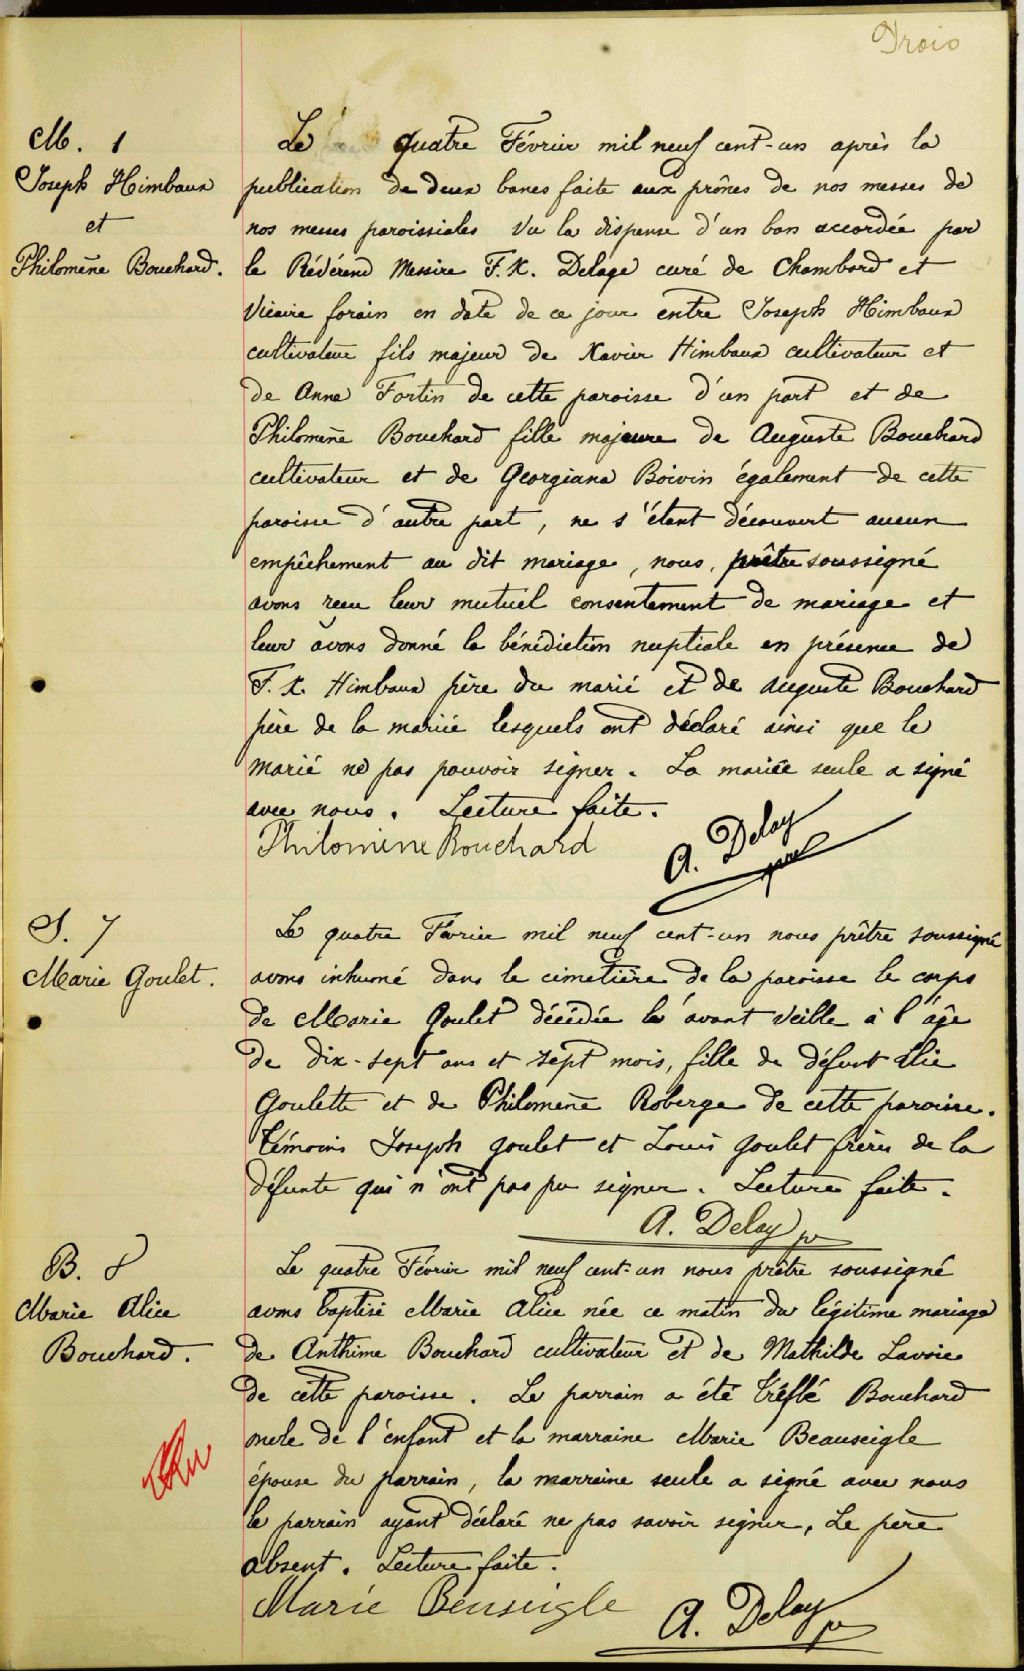 Trois
M. 1
Joseph Himbaux
et
Philomène Bouchard.
Le quatre Février mil neuf cent-un après la
publication de deux bancs faite aux prônes de nos messes de
nos messes paroissiales vu la dispense d'un ban accordée par
le Révérend Messire F. X. Delage curé de Chambord et
Vicaire forain en date de ce jour entre Joseph Himbaux
cultivateur fils majeur de Xavier Himbaux cultivateur et
de Anna Fortin de cette paroisse d'un part et de
Philomène Bouchard fille majeure de Auguste Bouchard
cultivateur et de Georgiana Boivin également de cette
paroisse d'autre part, ne s'étant découvert aucun
empêchement au dit mariage, nous, prêtre soussigné
avons reçu leur mutuel consentement de mariage et
leur avons donné la bénédiction nuptiale en présence de
F. X. Himbaux père du marié et de Auguste Bouchard
père de la mariée lesquels ont déclaré ainsi que le
marié ne pas pouvoir signer. La mariée seule a signé
avec nous. Lecture faite.
Philomène Bouchard
A. Delay
ptre
S. 7
Marie Goulet.
Le quatre Février mil neuf cent-un nous prêtre soussigné
avons inhumé dans le cimetière de la paroisse le corps
de Marie Goulet décédée la avant veille à l'âge
de dix-sept ans et sept mois, fille de défunt Elie
Goulette et de Philomène Roberge de cette paroisse.
Témoins Joseph Goulet et Louis Goulet frères de la
défunte qui n'ont pas pu signer. Lecture faite.
A. Delay ptre
B. 8
Marie Alice
Bouchard.
Le quatre Février mil neuf cent-un nous prêtre soussigné
avons baptisé Marie Alice née ce matin du légitime mariage
de Anthime Bouchard cultivateur et de Mathilde Lavoie
de cette paroisse. Le parrain a été Tréflé Bouchard
oncle de l'enfant et la marraine Marie Beauseigle
épouse du parrain, la marraine seule a signé avec nous
le parrain ayant déclaré ne pas savoir signer. Le père
absent. Lecture faite.
Marie Beuseigle
A. Delay ptre